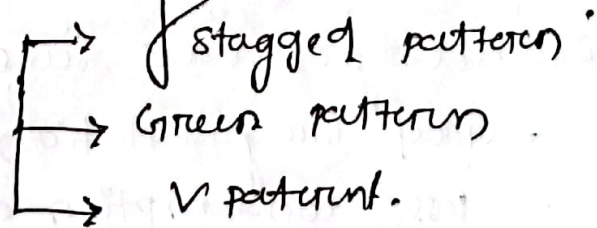 stagged pattern
Green pattern
V paterint.